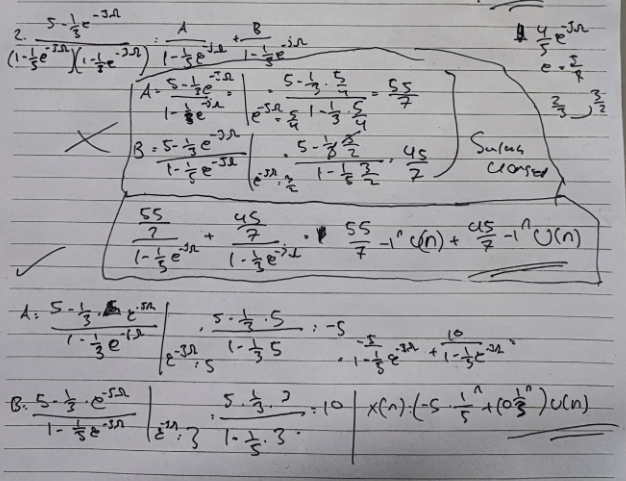 2. (5-1/3 e^-jΩ)/((1-1/5 e^-jΩ)(1-1/3 e^-jΩ)) = A/(1-1/5 e^-jΩ) + B/(1-1/3 e^-jΩ)
4/5 e^-jΩ
e = 5/4
2/3 3/2
A = (5-1/3 e^-jΩ)/(1-1/3 e^-jΩ) | e^-jΩ = 5/4 = (5-1/3 · 5/4)/(1-1/3 · 5/4) = 55/7
B = (5-1/3 e^-jΩ)/(1-1/5 e^-jΩ) | e^-jΩ = 3/2 = (5-1/3 3/2)/(1-1/5 3/2) = 45/7
(55/7)/(1-1/5 e^-jΩ) + (45/7)/(1-1/3 e^-jΩ) = 55/7 -1^n U(n) + 45/7 -1^n U(n)
A: (5-1/3 · e^-jΩ)/(1-1/3 e^-jΩ) | e^-jΩ : 5 = (5-1/3 · 5)/(1-1/3 5) : -5
= -5/(1-1/5 e^-jΩ) + 10/(1-1/3 e^-jΩ) =
B: (5-1/3 · e^-jΩ)/(1-1/5 e^-jΩ) | e^-jΩ : 3 = (5 · 1/3 · 3)/(1-1/5 · 3) = 10
x(n) : (-5 · 1/5^n + 10 1/3^n) U(n)